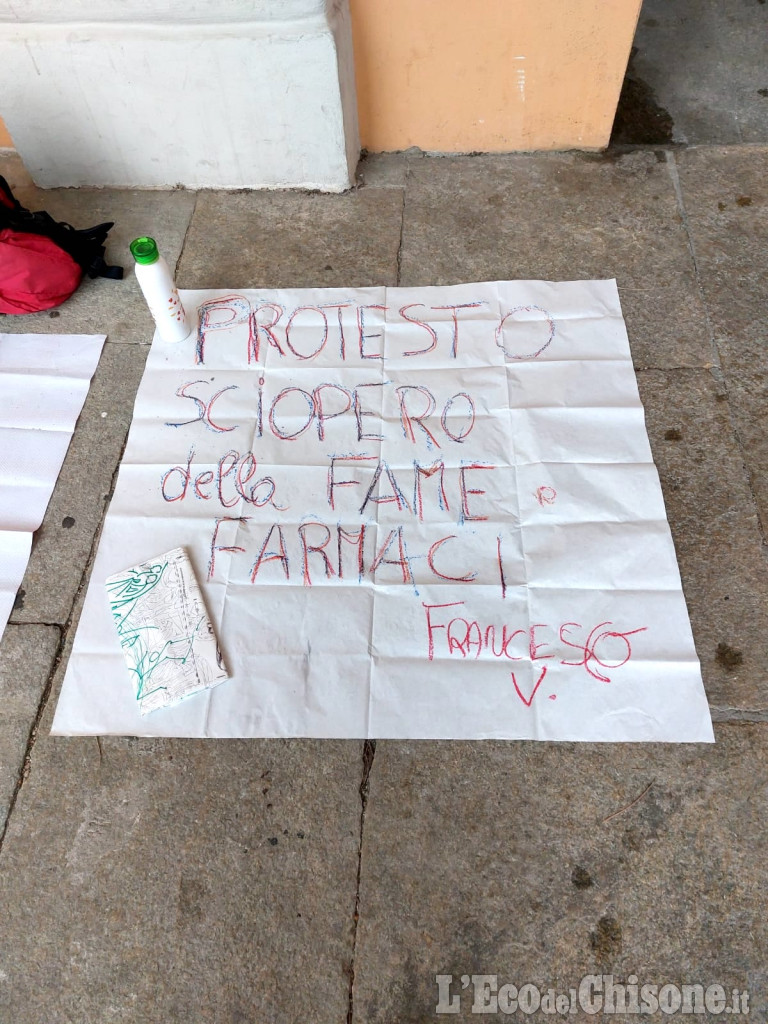 PROTESTO
SCIOPERO
della FAME
FARMACI
FRANCESCO
V.
L'EcodelChisone.it